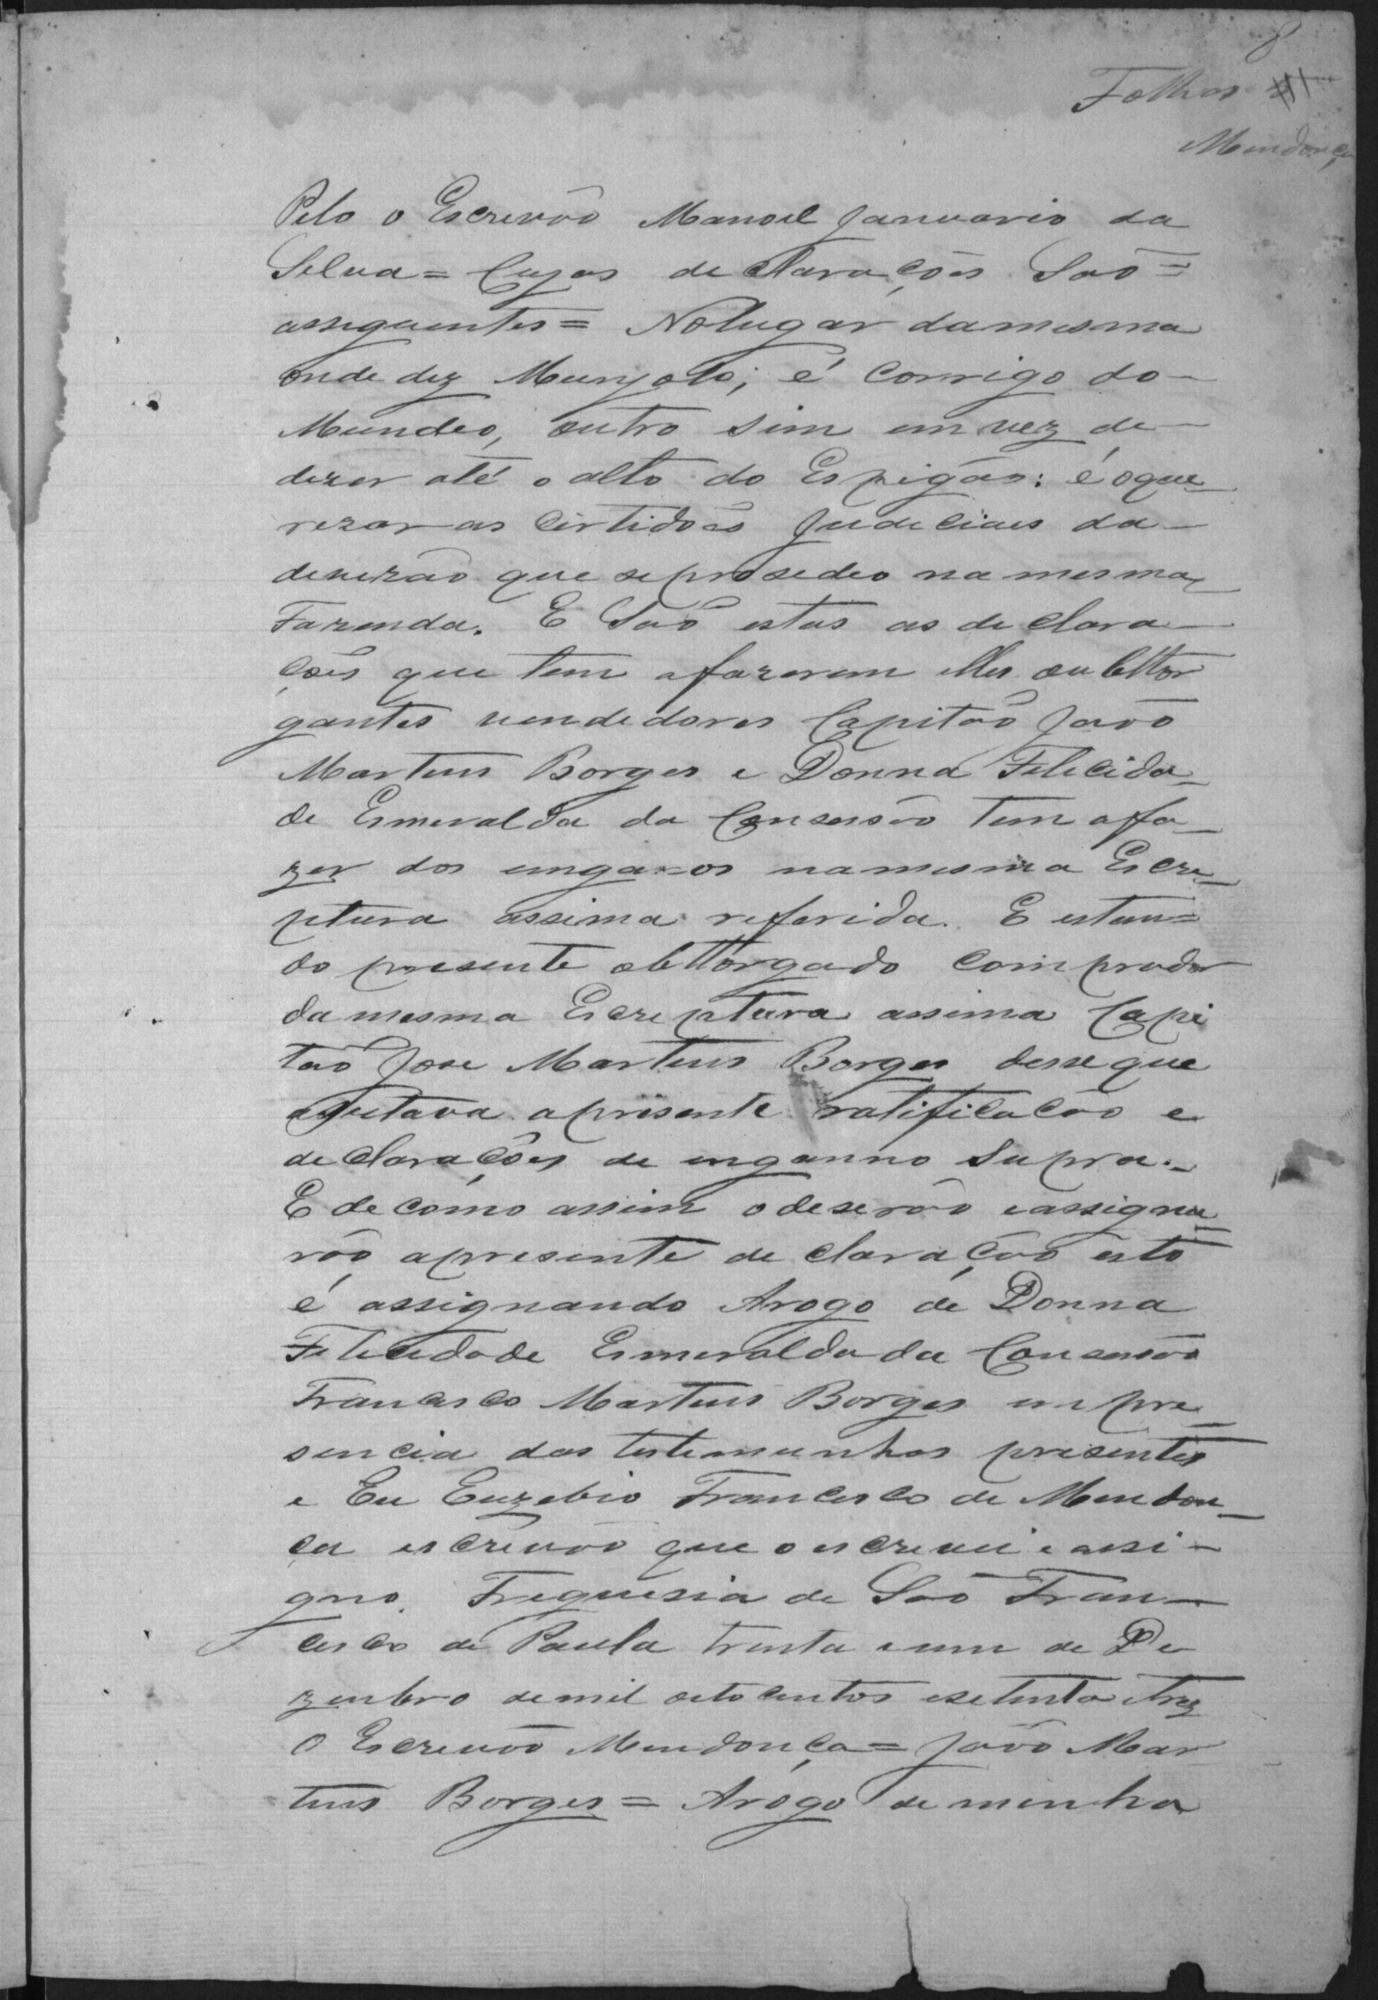 8
Folhas
Mendonça
Pelo o Escrivão Manoel Januario da
Silva = Cujas declarações São =
assequentes = Nolugar damesma
onde diz Munjolo; é Corrigo do -
Mundeo, outro sim em vez de -
dizer até o alto do Espigão: é oque
rezar as Certidoẽs Judiciais da -
devizão que seprosedeo na mesma
Fazenda. E São estas as declara -
çoẽs que tem afazerem elles outtor
gantes vendedores Capitão João
Martins Borges e Donna Felicida_
de Esmeralda da Consersão tem afa_
zer dos enganos namesma Escre_
ptura assima referida. E estan =
do presente obttorgado comprador
da mesma Escreptura assima Capi
tão Jose Martins Borges desse que
aseitava apresente ratificacão e
declaraçoẽs de enganno Supra._
E decomo assim odeserão eassigna =
rão apresente declaração isto
é assignando Arogo de Donna
Felicidade Esmeralda da Consersão
Francisco Martins Borges em pre_
sencia das testemunhas presentes
e Eu Euzebio Francisco de Mendon_
ça escrivão que o escrevi e assi -
gno. Freguesia de São Fran -
cisco de Paula trinta e um de De
zenbro demil oitocentos esetenta etrez
O Escrivão Mendonça = João Mar
tins Borges = Arogo de minha